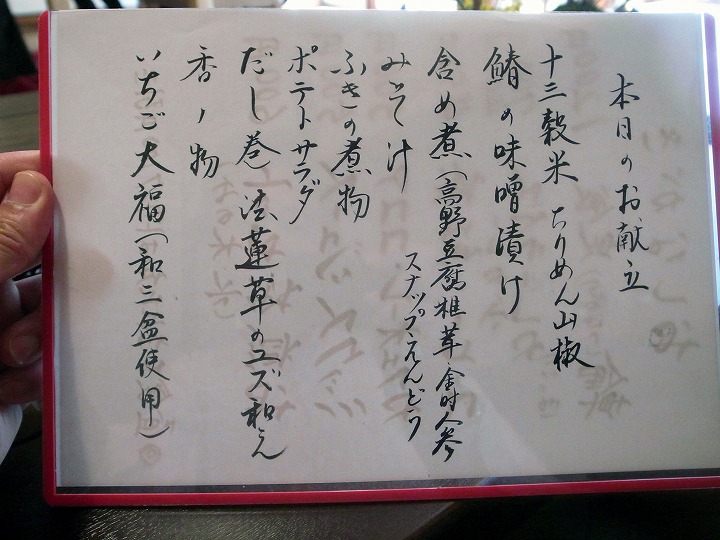 本日のお献立
十三穀米 ちりめん山椒
鰆の味噌漬け
含め煮(高野豆腐椎茸金時人参
スナップえんどう
みそ汁
ふきの煮物
ポテトサラダ
だし巻 法蓮草のユズ和え
香ノ物
いちご大福(和三盆使用)